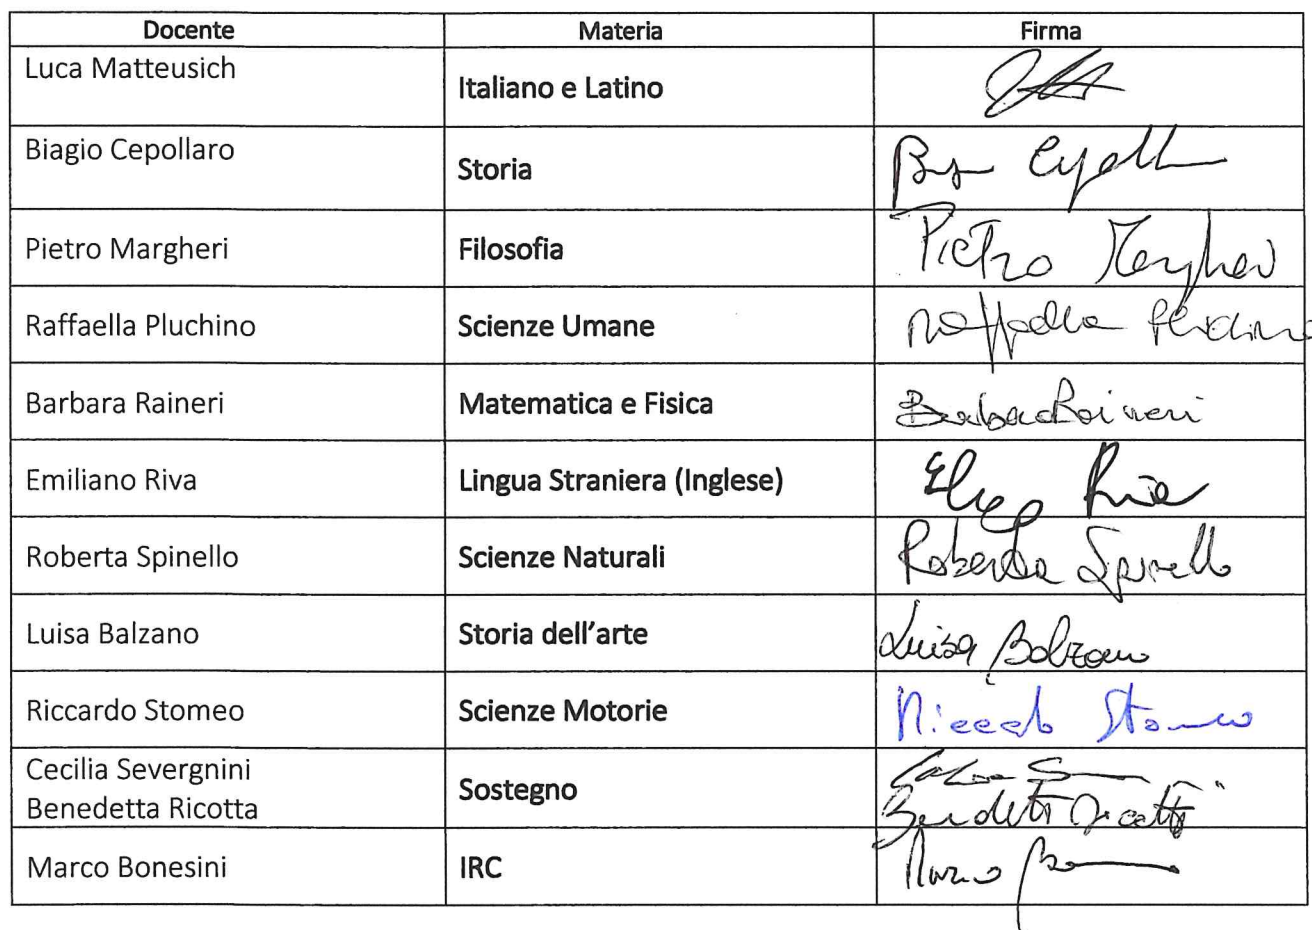 Docente Materia Firma
Luca Matteusich Italiano e Latino
Biagio Cepollaro Storia
Pietro Margheri Filosofia Pietro Margheri
Raffaella Pluchino Scienze Umane Raffaella Pluchino
Barbara Raineri Matematica e Fisica Barbara Raineri
Emiliano Riva Lingua Straniera (Inglese) Riva
Roberta Spinello Scienze Naturali Roberta Spinello
Luisa Balzano Storia dell'arte Luisa Balzano
Riccardo Stomeo Scienze Motorie Riccardo Stomeo
Cecilia Severgnini
Benedetta Ricotta Sostegno Benedetta Ricotta
Marco Bonesini IRC Marco